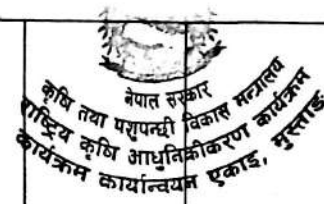 नेपाल सरकार
कृषि तथा पशुपन्छी विकास मन्त्रालय
राष्ट्रिय कृषि आधुनिकीकरण कार्यक्रम
कार्यक्रम कार्यान्वयन एकाइ, मुस्ताङ